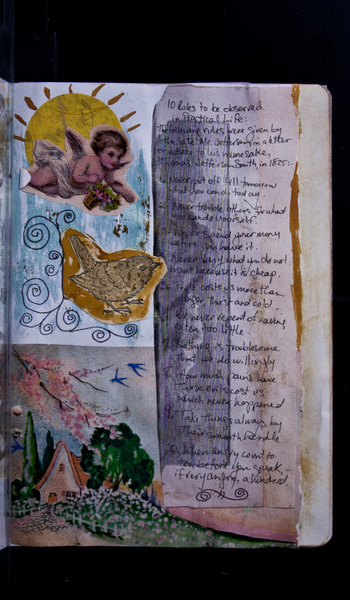 10 Rules to be observed
in Practical Life:
The following rules were given by
the late Mr. Jefferson in a letter
of advice to his namesake,
Thomas Jefferson Smith in 1825:-
1. Never put off till tomorrow
what you can do today.
2. Never trouble others for what
you can do yourself.
3. Never spend your money
before you have it.
4. Never buy what you do not
want because it is cheap.
5. Pride costs us more than
hunger, thirst and cold.
6. We never repent of having
eaten too little.
7. Nothing is troublesome
that we do willingly
8. How much pains have
those evils cost us
which never happened
9. Take things always by
their smooth handle
10. When angry count to
ten before you speak -
if very angry, a hundred.